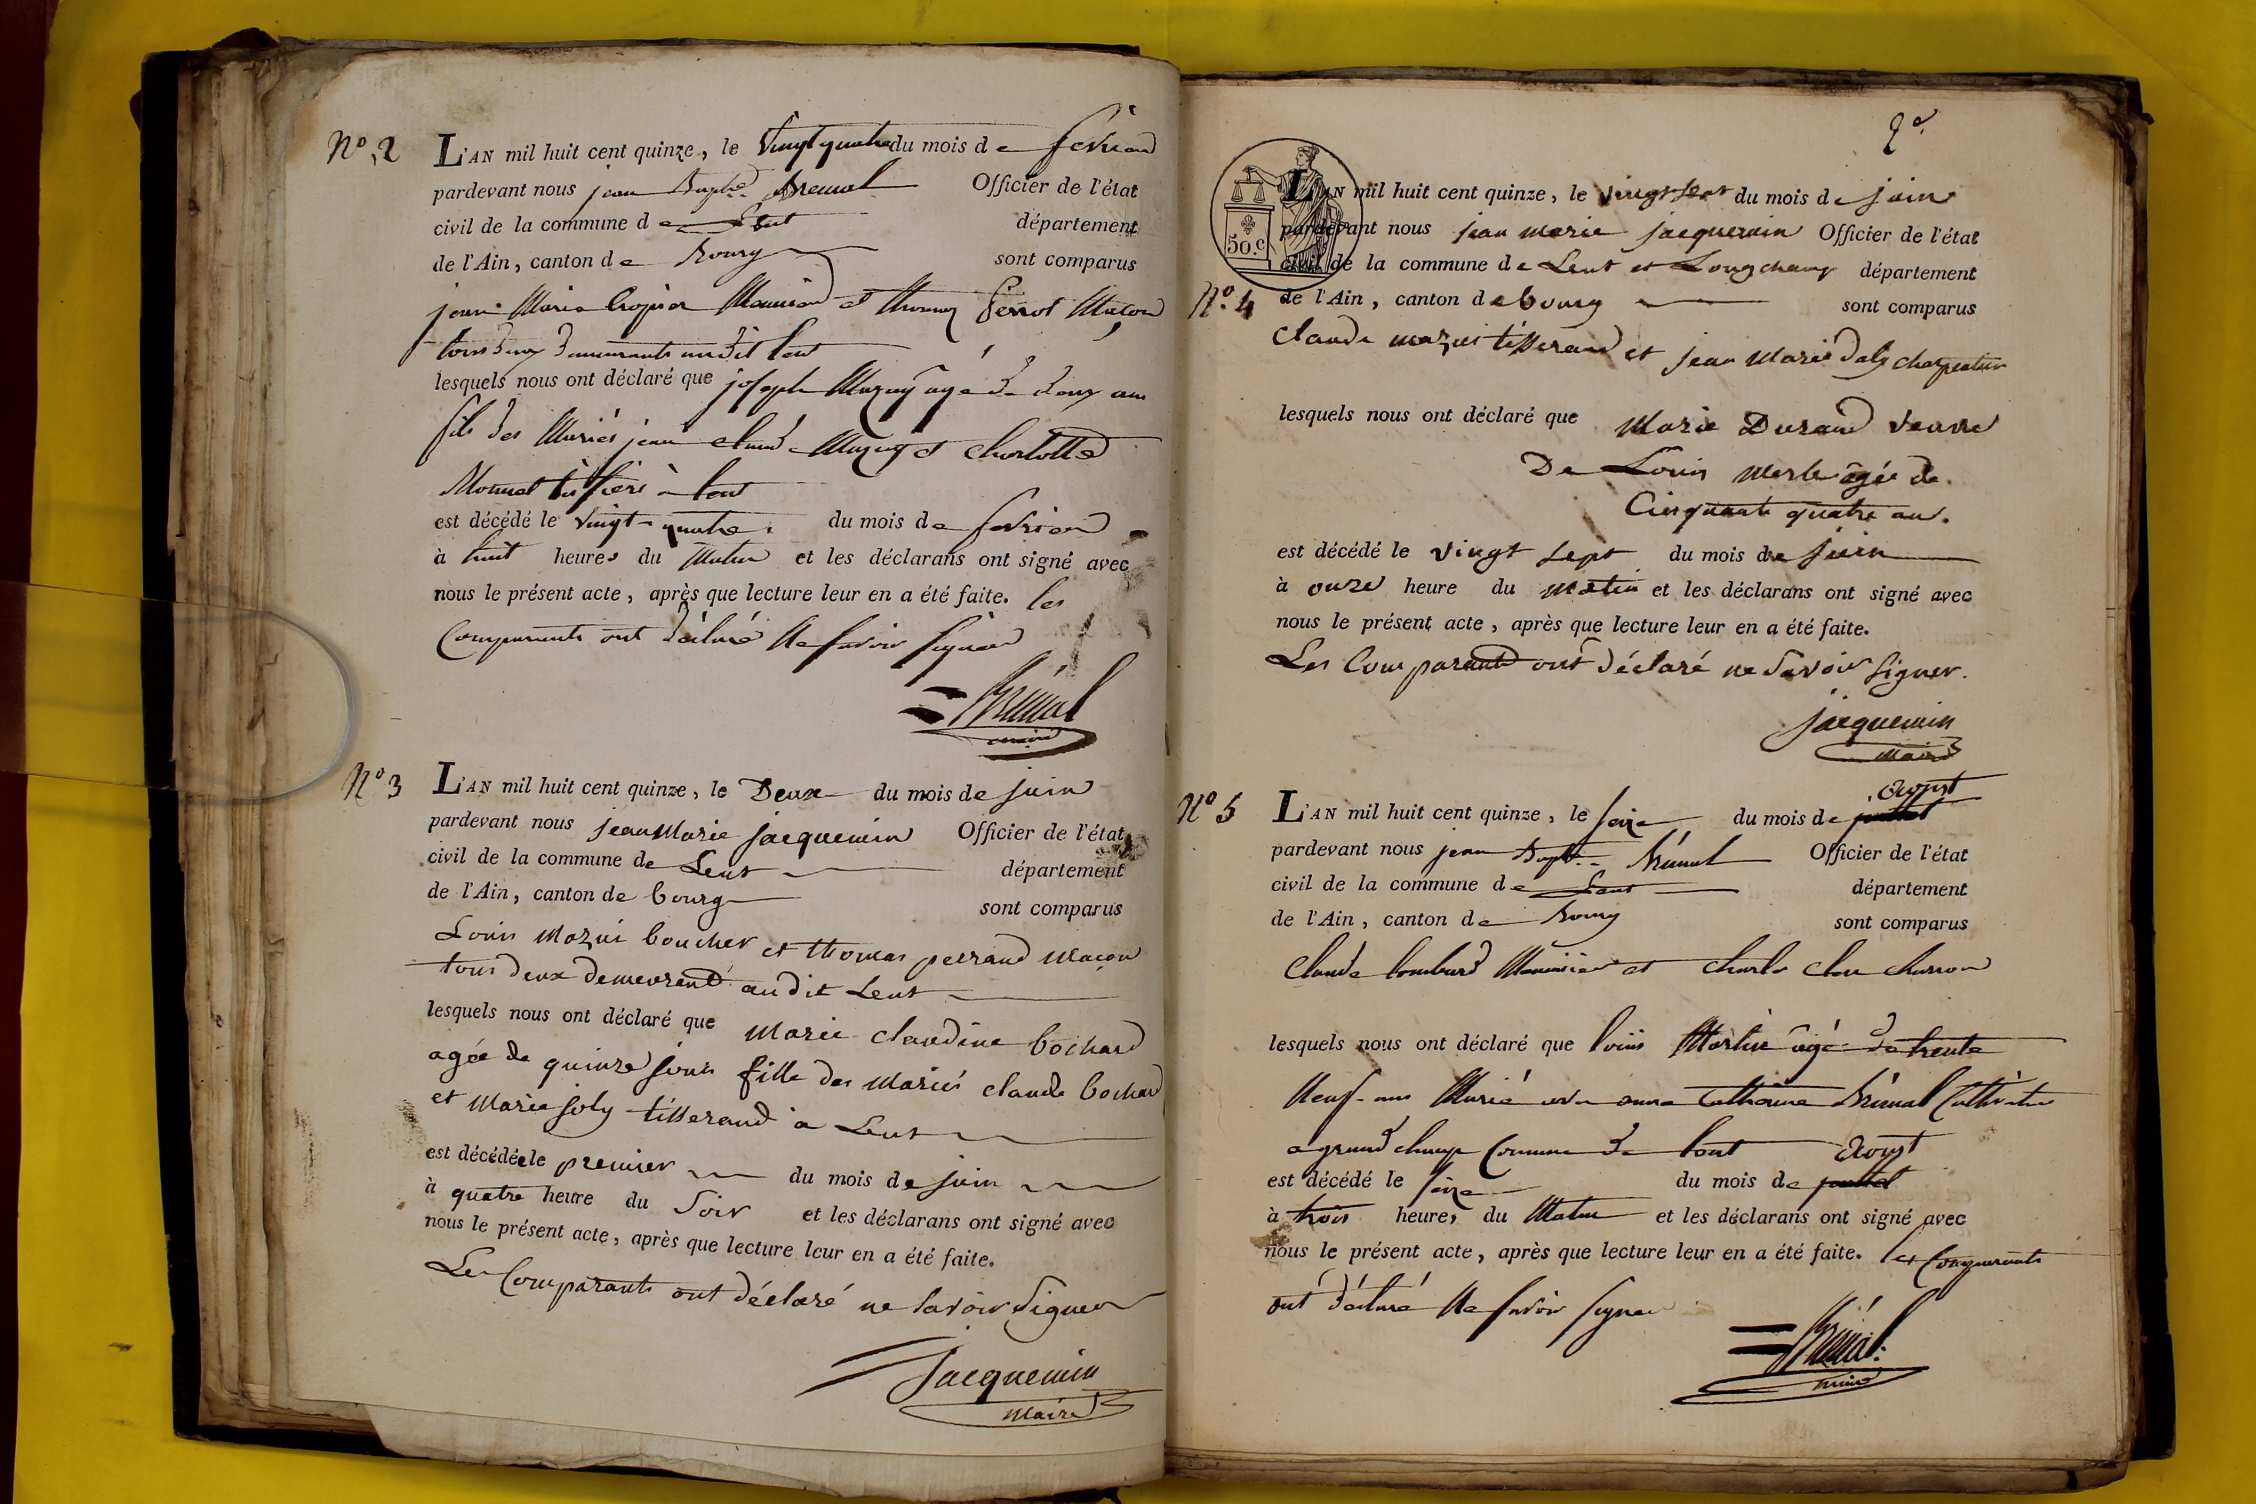 N.o 2
L'AN mil huit cent quinze, le Vingt quatre du mois de fevrier
pardevant nous jean Bapte. Brémal Officier de l'état
civil de la commune de Lent département
de l'Ain, canton de Bourg sont comparus
jean Marie Menuisier et thomas Perrot Maçon
tous deux demeurants audit lent
lesquels nous ont déclaré que joseph Mazuy agé de deux ans
fils des Mariés jean claude Mazuy et charlotte
Monnet à lent
est décédé le vingt-quatre. du mois de fevrier
à huit heures du Matin et les déclarans ont signé avec
nous le présent acte, après que lecture leur en a été faite. les
Comparants ont déclaré Ne savoir signer
Brémal
maire
N.o 3
L'AN mil huit cent quinze, le Deux du mois de juin
pardevant nous jean Marie jacquemin Officier de l'état
civil de la commune de Lent département
de l'Ain, canton de bourg sont comparus
Louis Mazui boucher et thomas perrand Maçon
tous deux demeurant audit Lent
lesquels nous ont déclaré que Marie claudine bochard
agée de quinze jours fille des Mariés claude bochard
et Marie joly tisserand à Lent
est décédée le premier du mois de juin
à quatre heure du Soir et les déclarans ont signé avec
nous le présent acte, après que lecture leur en a été faite.
Les Comparants ont déclaré ne savoir signer
Jacquemin
Maire
2e.
50.c
L'AN mil huit cent quinze, le vingt sept du mois de juin
pardevant nous jean marie jacquemin Officier de l'état
civil de la commune de Lent et Longchamp département
N.o 4
de l'Ain, canton de bourg sont comparus
Claude mazui tisserand et jean Marie daly charpentier
lesquels nous ont déclaré que Marie Durand veuve
De Louis Merle agée de
Cinquante quatre an.
est décédé le vingt sept du mois de juin
à onze heure du Matin et les déclarans ont signé avec
nous le présent acte, après que lecture leur en a été faite.
Les Comparants ont déclaré ne Savoir signer.
jacquemin
Maire
N.o 5
Aoust
L'AN mil huit cent quinze, le seize du mois de juillet
pardevant nous jean Bapte. Brémal Officier de l'état
civil de la commune de Lent département
de l'Ain, canton de Bourg sont comparus
Claude lombard Menuisier et charle charron
lesquels nous ont déclaré que louis Martin agé de trente
Neuf ans Marié avec anne Catherine Brémal Cultivateur
a grand champ Commune de lent Aoust
est décédé le seize du mois de juillet
à trois heures du Matin et les déclarans ont signé avec
nous le présent acte, après que lecture leur en a été faite. les Comparants
ont déclaré Ne savoir signer
Brémal
maire